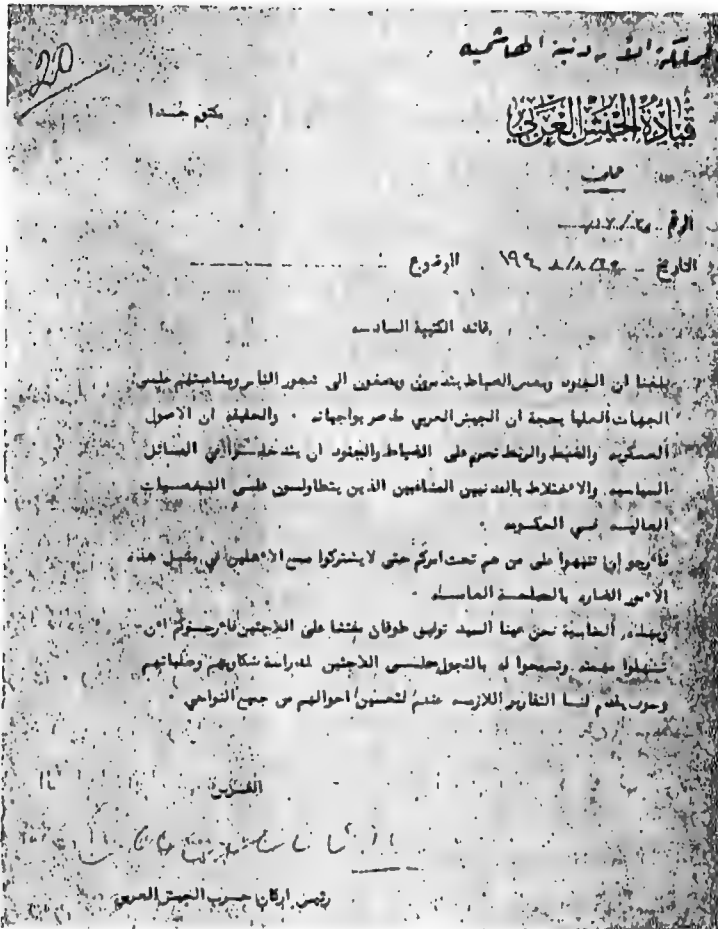 20
المملكة الأردنية الهاشمية
مكتوم جدا
قيادة الجيش العربي
عمان
الرقم
التاريخ الموضوع
قائد الكتيبة السادسه
بلغنا ان الجنود وبعض الضباط يتذمرون ويصغون الى تهجور الناس على
الجهات العليا بحجة ان الجيش العربي قصر بواجباته . والحقيقة ان الاصول
العسكريه والضبط والربط تحرم على الضباط والجنود ان يتدخلوا في المسائل
السياسيه والاختلاط بالمدنيين المشاغبين الذين يتطاولون على الشخصيات
العاليه في الحكومه .
فأرجو ان تنبهوا على من هم تحت امركم حتى لا يشتركوا مع الأهلين في مثل هذه
الأمور الضاره بالمصلحة العامه .
وبهذه المناسبة نحن عينا السيد توفيق طوقان مفتشا على اللاجئين فأرجوكم ان
تسهلوا مهمته وتسمحوا له بالتجول على اللاجئين لدراسة شكاويهم وطلباتهم
وسوف يقدم لنا التقارير اللازمه عنهم لتحسين احوالهم من جميع النواحي .
رئيس اركان حرب الجيش العربي